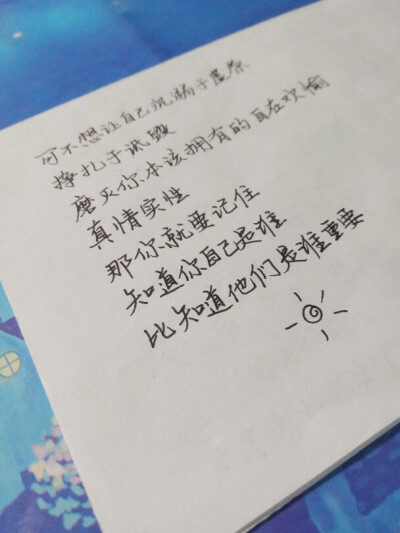 可不想让自己沉溺于虚奈
挣扎于诋毁
磨灭你本该拥有的自在欢愉
真情实性
那你就要记住
知道你自己是谁
比知道他们是谁重要